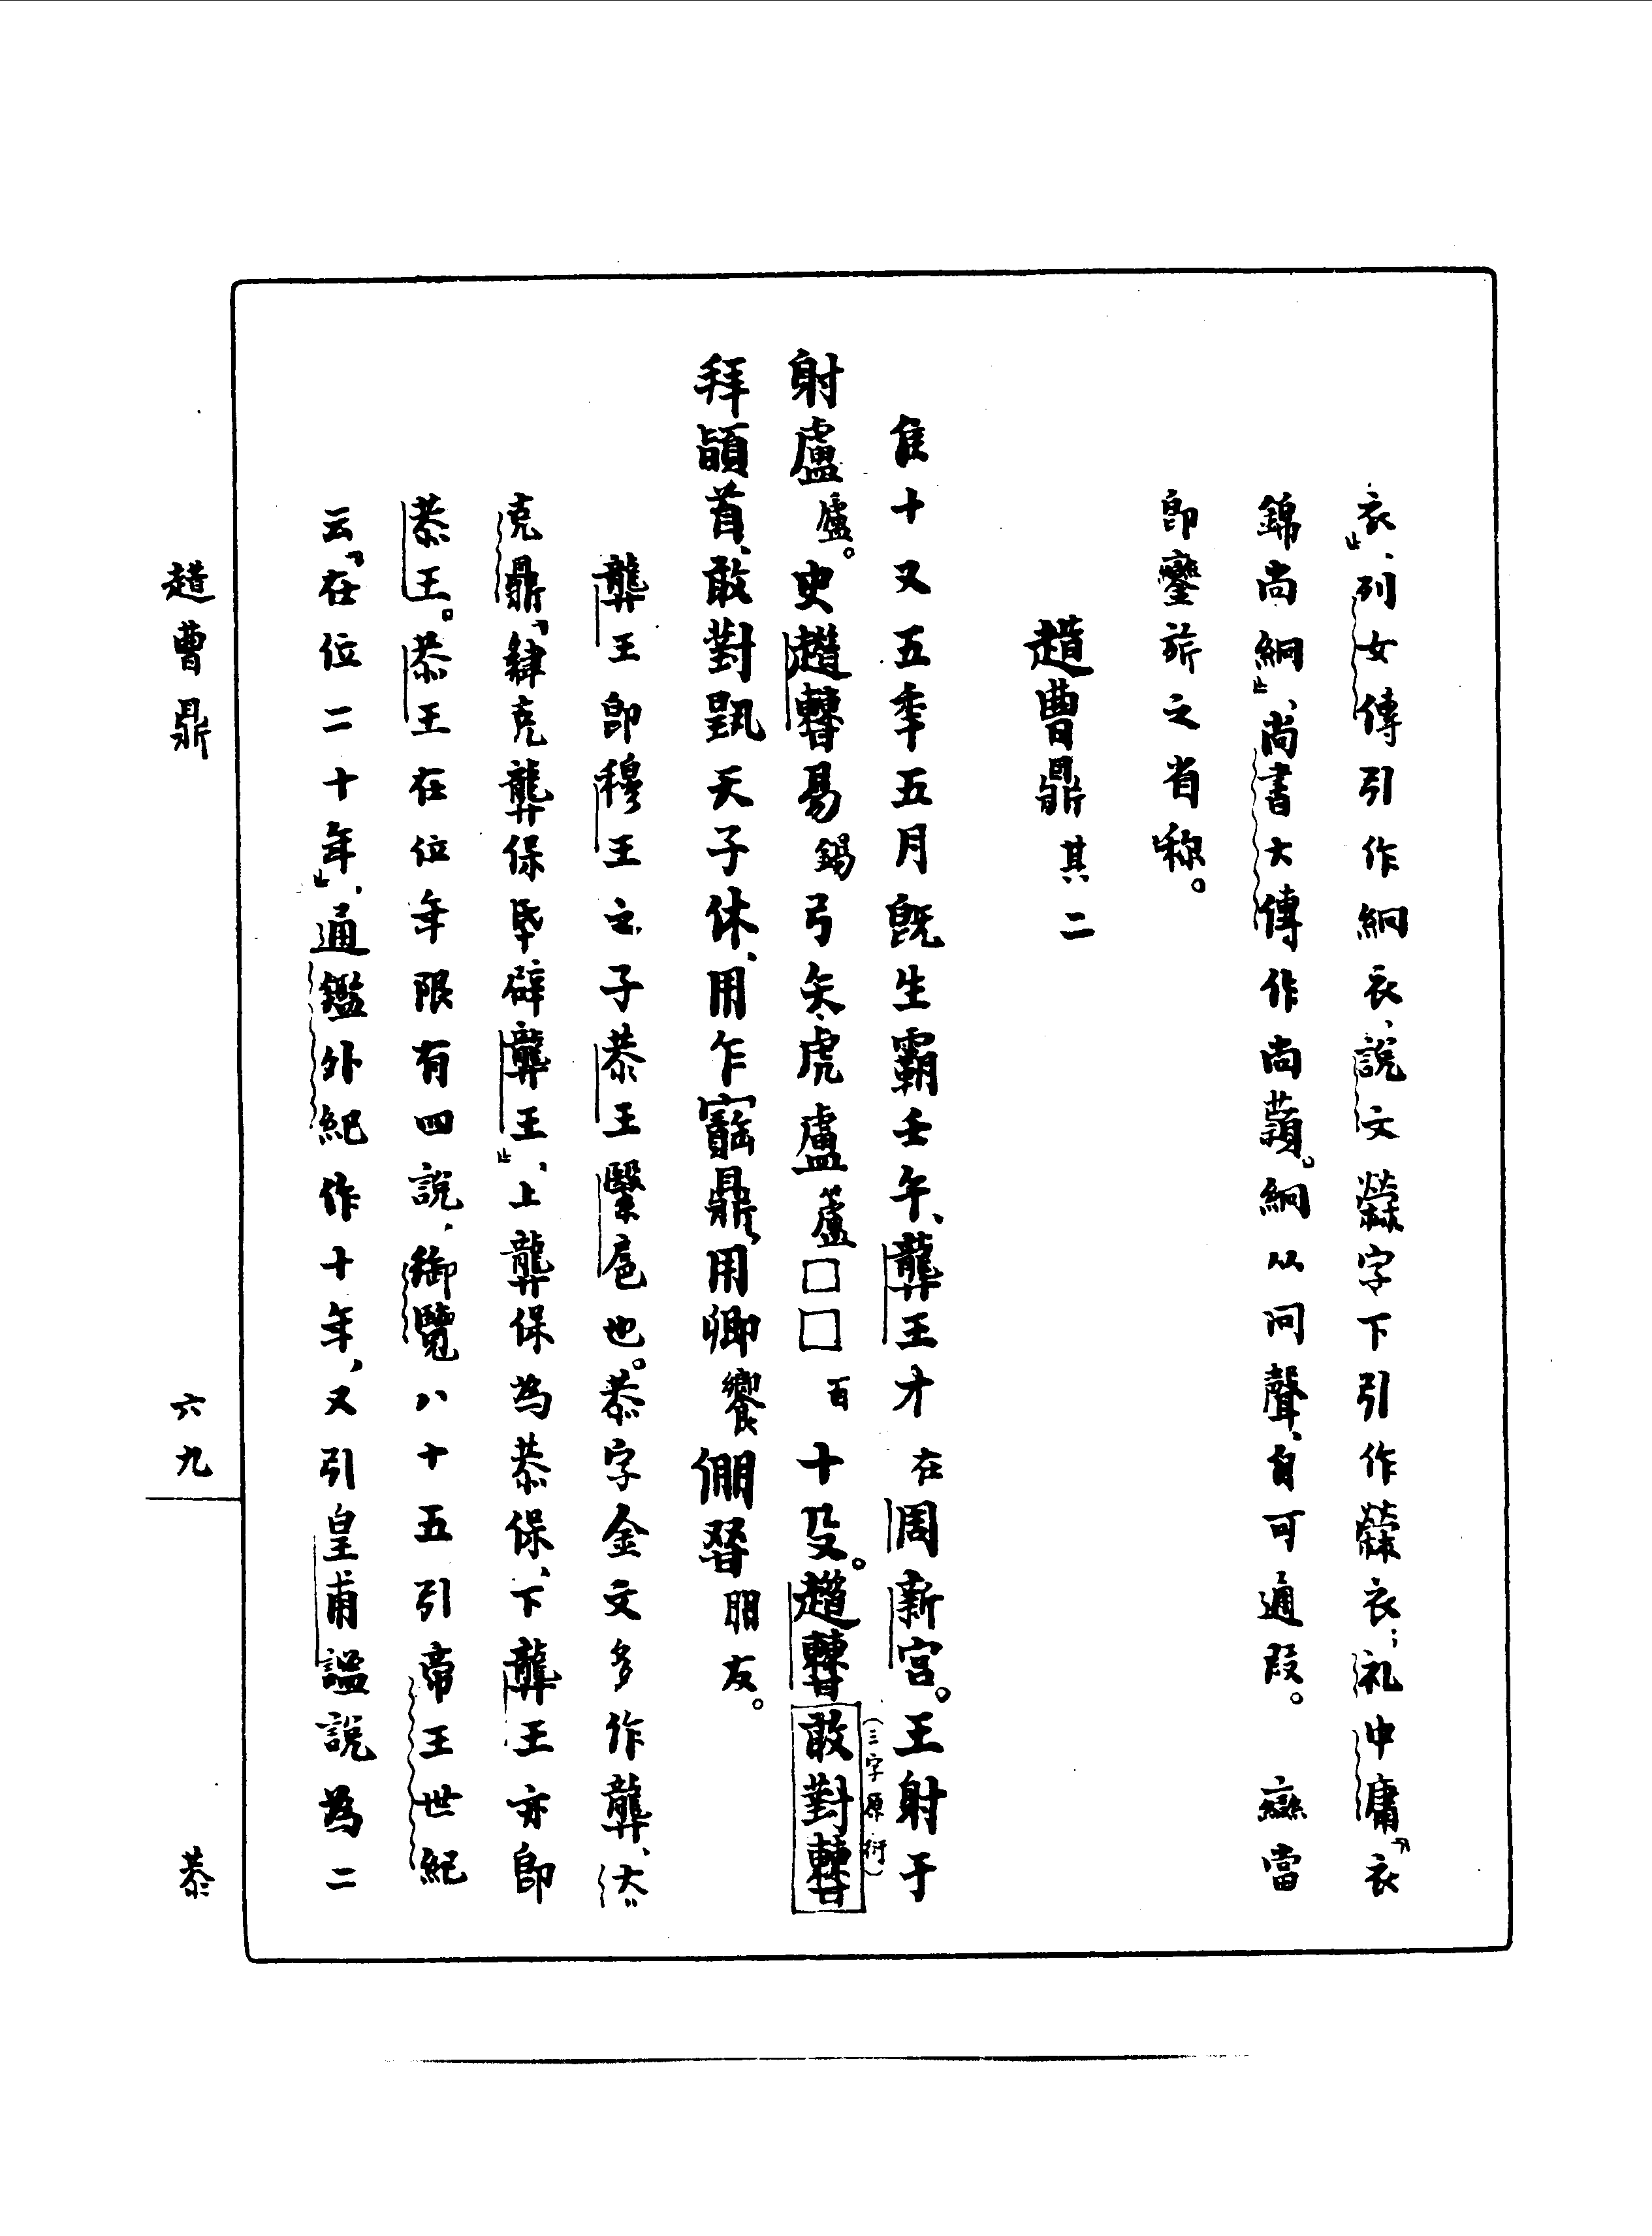 衣」、列女傳引作絅衣、說文褮字下引作褮衣；礼中庸「衣
錦尚絅」、尚書大傳作尚蘔。絅从冋聲、自可通叚。䜌當
即鑾旂之省称。
趞曹鼎其二
隹十又五年五月既生霸壬午、龏王才在周新宮。王射于
射盧廬。史趞曹易錫弓矢、虎盧籚□□百十殳。趞曹敢對曹（三字原衍）
拜𩒨首、敢對揚天子休、用乍寶鼎、用卿饗倗朋友。
龏王即穆王之子恭王繄扈也。恭字金文多作龏、大
克鼎「肆克龏保氒辟龏王」、上龏保為恭保、下龏王亦即
恭王。恭王在位年限有四說、御覽八十五引帝王世紀
云「在位二十年」、通鑑外紀作十年、又引皇甫謐說為二
趞曹鼎
六九
恭